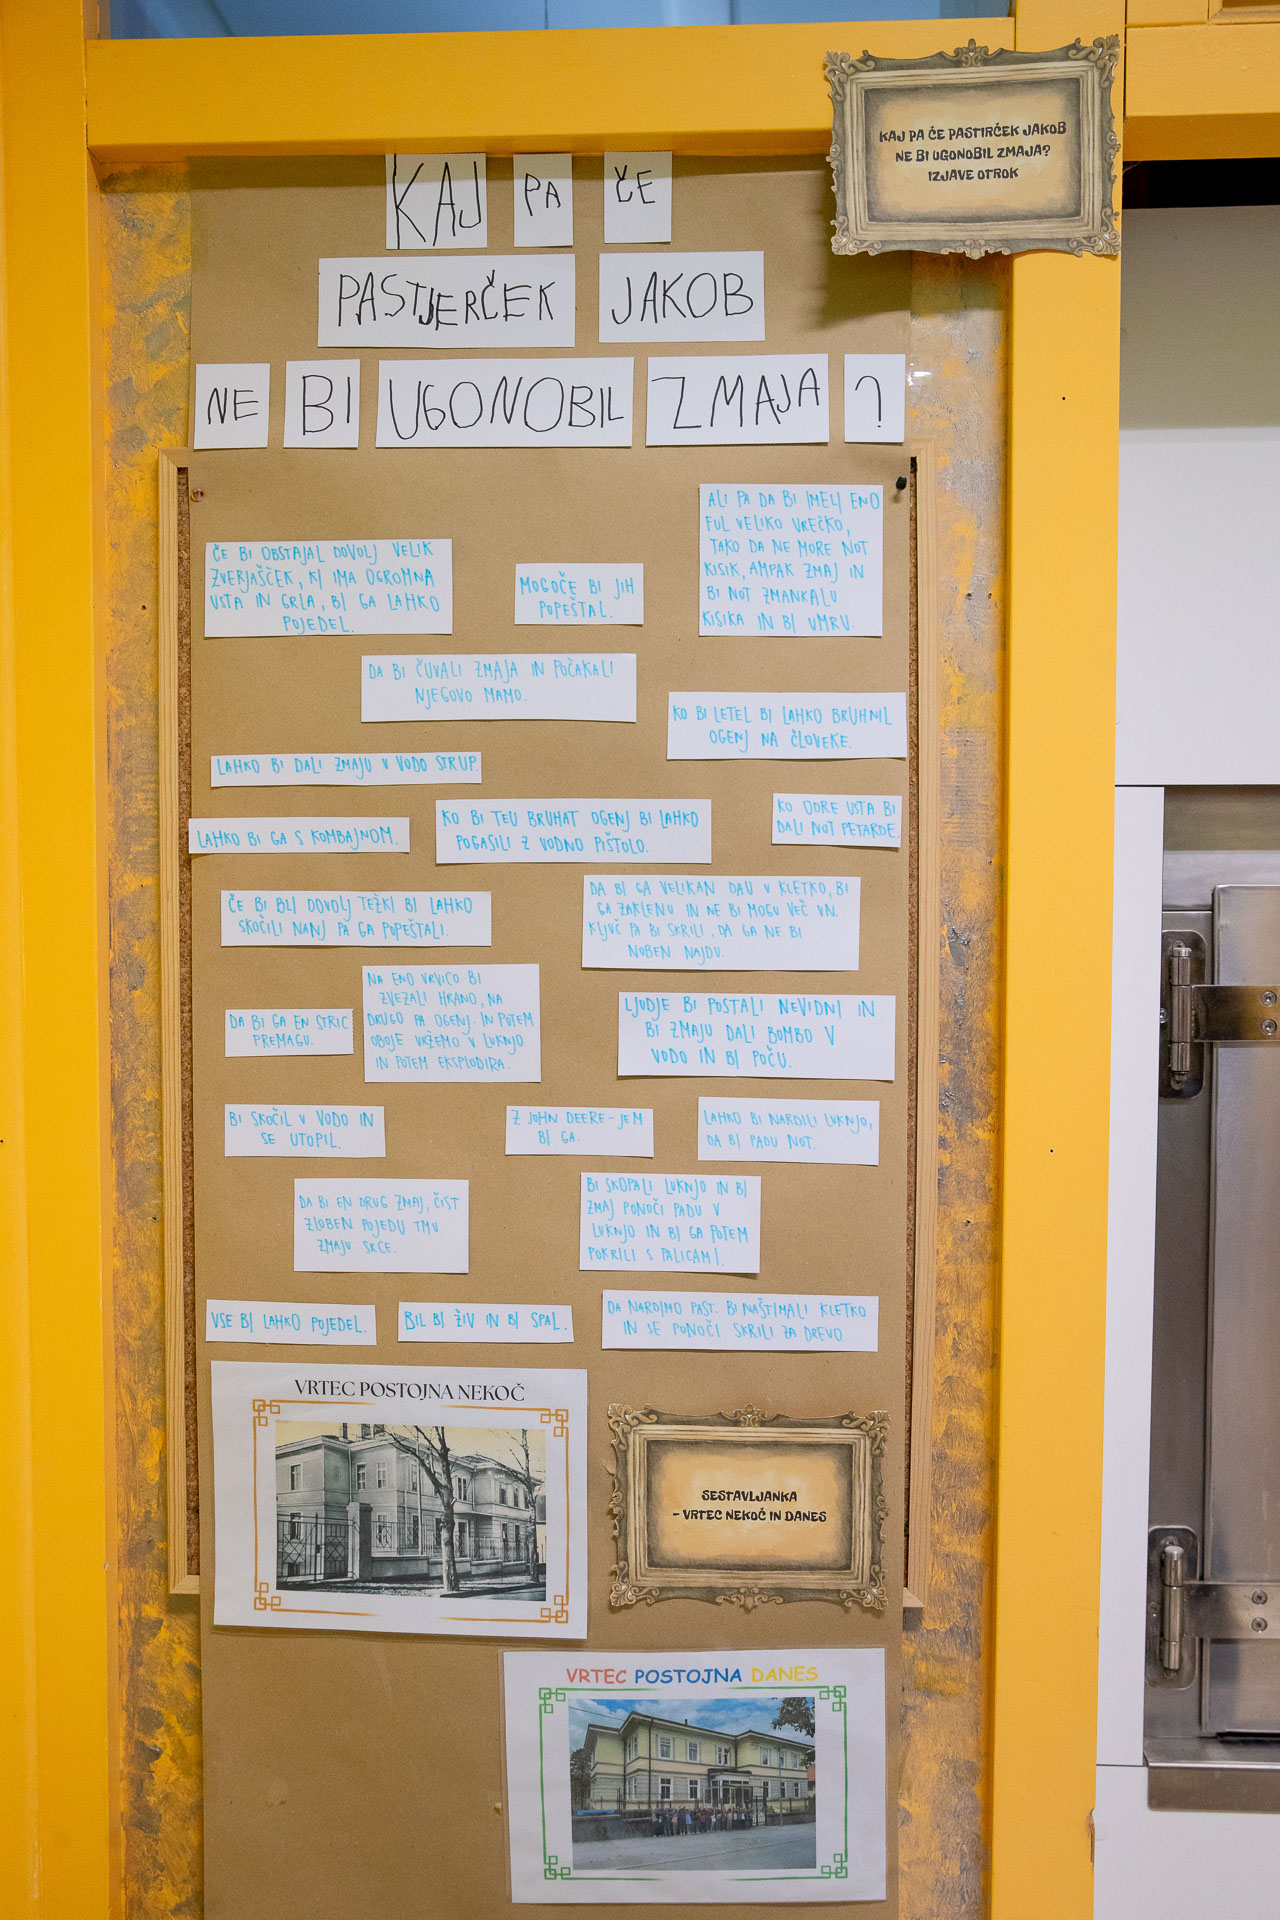 KAJ PA ČE PASTIRČEK JAKOB
NE BI UGONOBIL ZMAJA?
IZJAVE OTROK
KAJ PA ČE
PASTJERČEK JAKOB
NE BI UGONOBIL ZMAJA?
ALI PA DA BI IMELI ENO
FUL VELIKO VREČKO,
TAKO DA NE MORE NOT
KISIK, AMPAK ZMAJ IN
BI NOT ZMANKALU
KISIKA IN BI UMRU.
ČE BI OBSTAJAL DOVOLJ VELIK
ZVERJAŠČEK, KI IMA OGROMNA
USTA IN GRLA, BI GA LAHKO
POJEDEL.
MOGOČE BI JIH
POPEŠTAL.
DA BI ČUVALI ZMAJA IN POČAKALI
NJEGOVO MAMO.
KO BI LETEL BI LAHKO BRUHNIL
OGENJ NA ČLOVEKE.
LAHKO BI DALI ZMAJU V VODO STRUP.
KO ODRE USTA BI
DALI NOT PETARDE.
KO BI TEU BRUHAT OGENJ BI LAHKO
POGASILI Z VODNO PIŠTOLO.
LAHKO BI GA S KOMBAJNOM.
DA BI GA VELIKAN DAU V KLETKO, BI
GA ZAKLENU IN NE BI MOGU VEČ VN.
KLJUČ PA BI SKRILI, DA GA NE BI
NOBEN NAJDU.
ČE BI BLI DOVOLJ TEŽKI BI LAHKO
SKOČILI NANJ PA GA POPEŠTALI.
NA ENO VRVICO BI
ZVEZALI HRANO, NA
DRUGO PA OGENJ. IN POTEM
OBOJE VRŽEMO V LUKNJO
IN POTEM EKSPLODIRA.
LJUDJE BI POSTALI NEVIDNI IN
BI ZMAJU DALI BOMBO V
VODO IN BI POČU.
DA BI GA EN STRIC
PREMAGU.
BI SKOČIL V VODO IN
SE UTOPIL.
Z JOHN DEERE-JEM
BI GA.
LAHKO BI NARDILI LUKNJO,
DA BI PADU NOT.
DA BI EN DRUG ZMAJ, ČIST
ZLOBEN POJEDU TMU
ZMAJU SRCE.
BI SKOPALI LUKNJO IN BI
ZMAJ PONOČI PADU V
LUKNJO IN BI GA POTEM
POKRILI S PALICAMI.
VSE BI LAHKO POJEDEL.
BIL BI ŽIV IN BI SPAL.
DA NARDIMO PAST. BI NAŠTIMALI KLETKO
IN SE PONOČI SKRILI ZA DREVO.
VRTEC POSTOJNA NEKOČ
SESTAVLJANKA
- VRTEC NEKOČ IN DANES
VRTEC POSTOJNA DANES